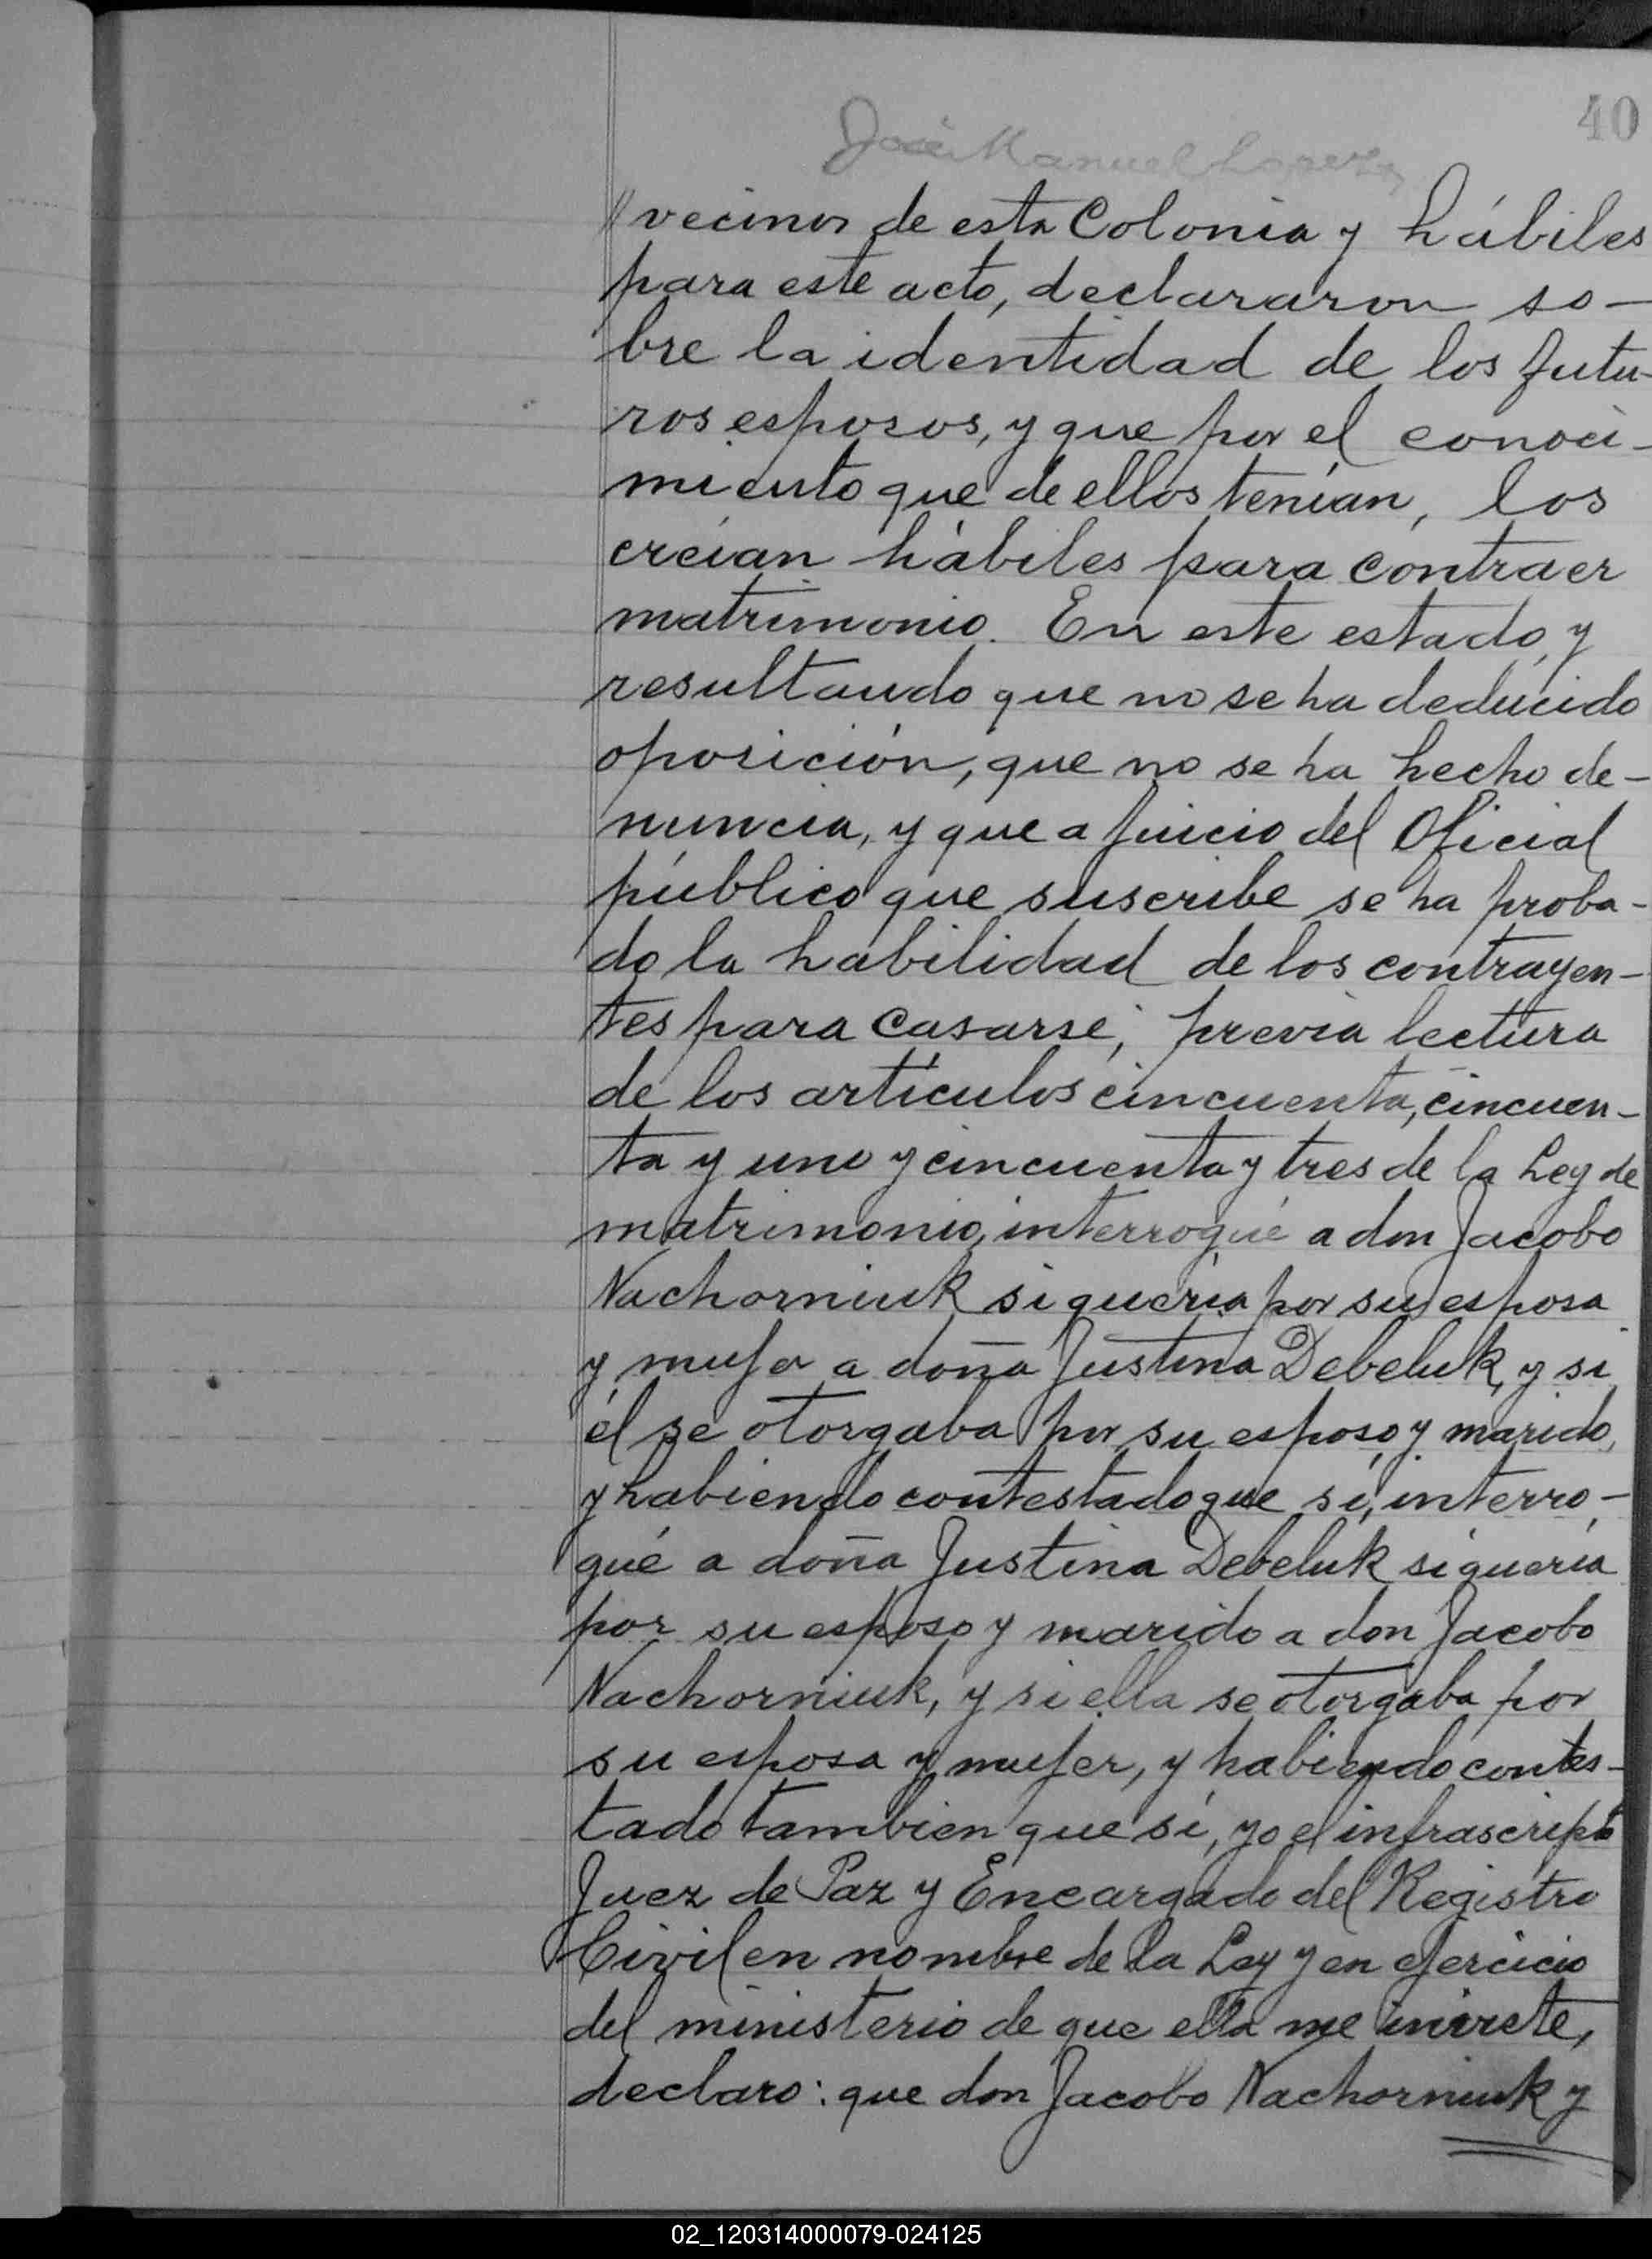 40
José Manuel Lopez
// vecinos de esta Colonia y hábiles
para este acto, declararon so-
bre la identidad de los futu-
ros esposos, y que por el conoci-
miento que de ellos tenían, los
creían hábiles para contraer
matrimonio. En este estado, y
resultando que no se ha deducido
oposición, que no se ha hecho de-
nuncia, y que a juicio del Oficial
público que suscribe se ha proba-
do la habilidad de los contrayen-
tes para casarse; previa lectura
de los artículos cincuenta, cincuen-
ta y uno y cincuenta y tres de la Ley de
matrimonio, interrogué a don Jacobo
Nachorniuk si quería por su esposa
y mujer a doña Justina Debeluk, y si
él se otorgaba por su esposo y marido,
y habiendo contestado que sí, interro-
gué a doña Justina Debeluk si quería
por su esposo y marido a don Jacobo
Nachorniuk, y si ella se otorgaba por
su esposa y mujer, y habiendo contes-
tado tambien que sí, yo el infrascripto
Juez de Paz y Encargado del Registro
Civil en nombre de la Ley y en ejercicio
del ministerio de que ella me inviste,
declaro: que don Jacobo Nachorniuk y
02_120314000079-024125